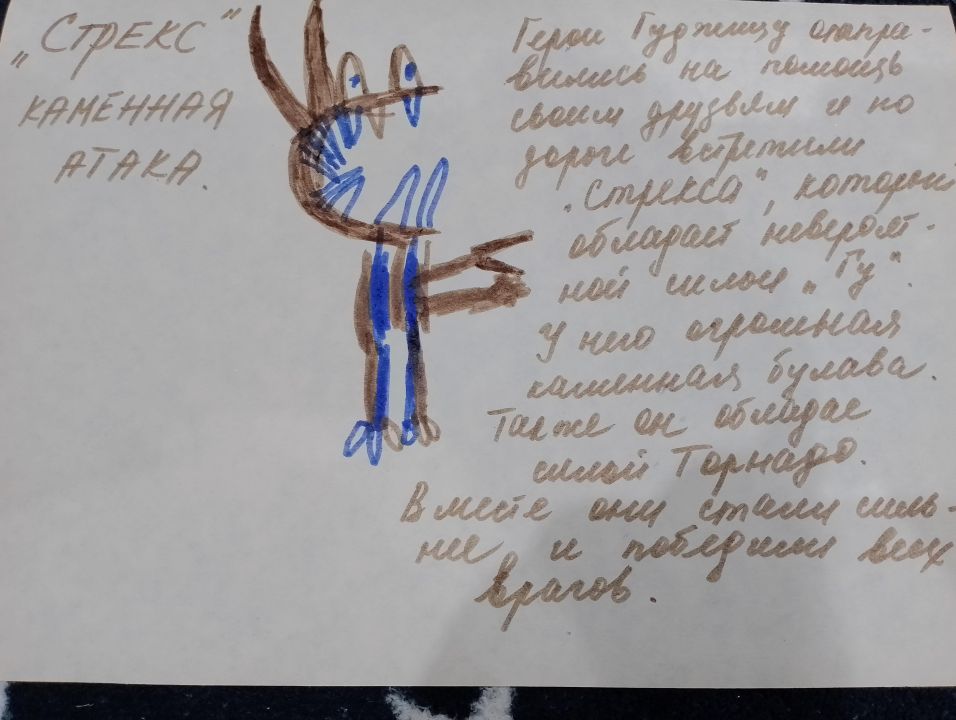 „Стрекс"
каменная
атака.
Герои Гуджитцу отпра-
вились на помощь
своим друзьям и по
дороге встретили
„Стрекса", который
обладает неверояt-
ной силой „Гу".
У него огромная
каменная булава.
Также он обладае
силой Торнадо.
Вместе они стали силь-
нее и победили всех
врагов.